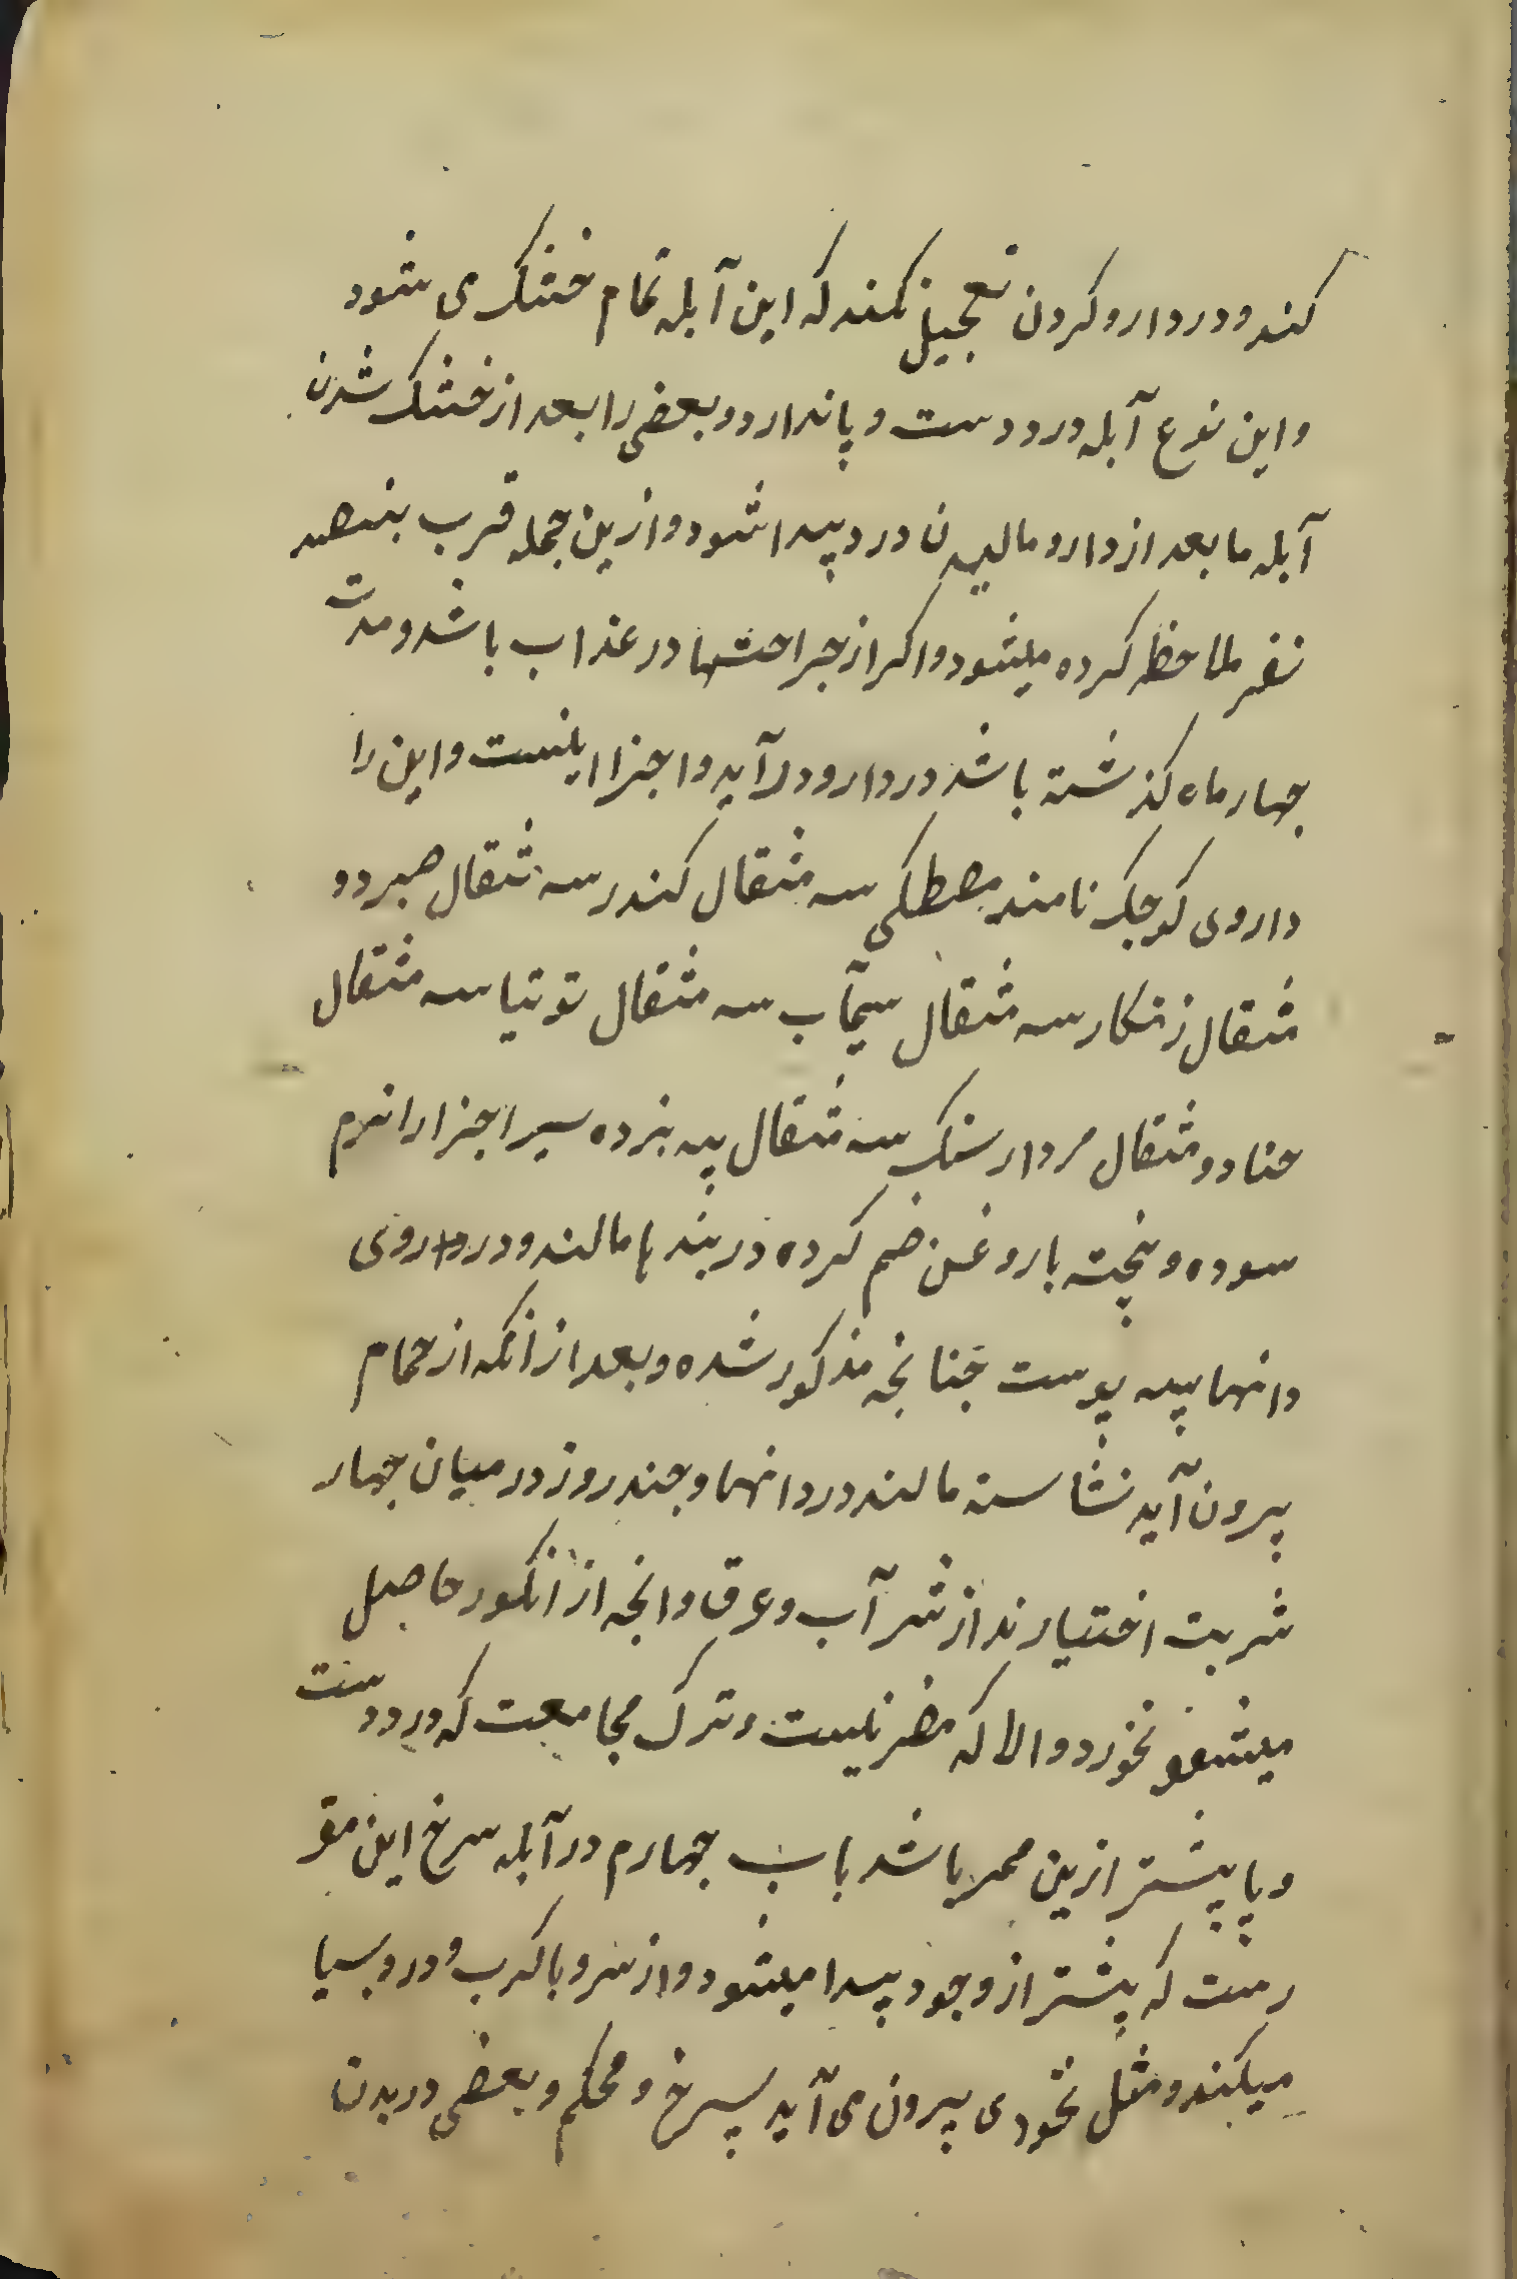 کنند و در دارو کردن تعجیل نکنند که این آبله تمام خشک می شود
و این نوع آبله درد دست و پا ندارد و بعضی را بعد از خشک شدن
آبله ما بعد از دارو مالیدن درد پیدا شود و ازین جمله قرب بنصد
نفر ملاحظه کرده میشود و اکر از جراحتها در عذاب باشد و مدت
جهار ماه کذشته باشد در دارو درآید و اجزا اینست و این را
داروی کوجک نامند مصطکی سه مثقال کندر سه مثقال صبر دو
مثقال زنکار سه مثقال سیمآب سه مثقال توتیا سه مثقال
حنا دو مثقال مردار سنک سه مثقال پیه بز ده سیر اجزا را نرم
سوده و پخته با روغن ضم کرده در بندها مالند و در داروی
دانها پیه پوست جنانجه مذکور شده و بعد از آنکه از حمام
پیرون آید نشاسته مالند در دانها و جند روز در میان جهار
شربت اختیارند از شرآب و عرق و انجه از انکور حاصل
میشود نخورد والا که مضر نیست و ترک مجامعت که درد دست
و پا پیشتر ازین ممر باشد باب جهارم در آبله سرخ این مقر
رست که پیشتر از وجود پیدا میشود و از سر و پا کرب و درد بسیا
میکند و مثل نخودی پیرون می آید سرخ و محکم و بعضی در بدن